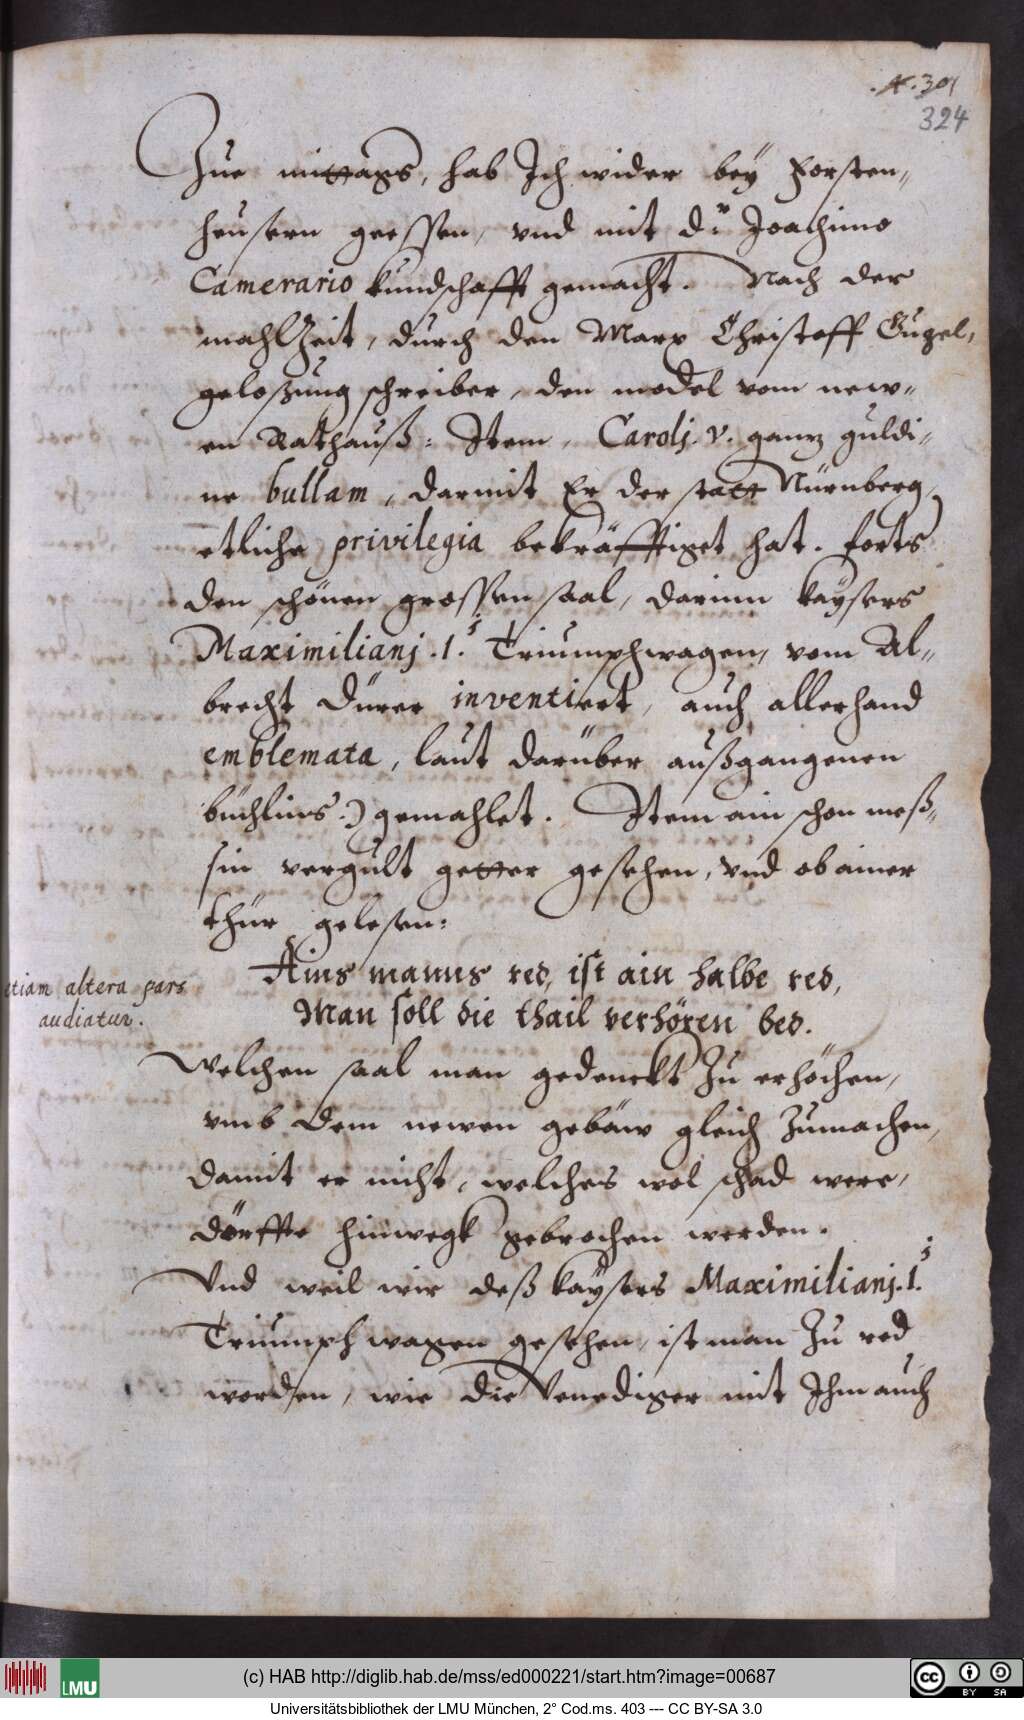 .A. 301
324
Zue mittags, hab Ich wider bey Forsten„
heusern geessen, vnd mit d.r Joachimo
Camerario kundschafft gemacht. Nach der
mahlZeit, durch den Marx Christoff Gugel,
geloszung schreiber, den model vom new„
en Rathauß: Item, Carolj. V. gantz guldi„
ne bullam, darmit Er der statt Nürnberg,
etliche privilegia bekräfftiget hat. forts
den schönen grossen saal, darinn kaysers
Maximilianj .1.i Triumphwagen, vom Al„
brecht Dürer inventiert, auch allerhand
emblemata, laut darüber außgangenen
büchlins.) gemahlet. Item ain schon meß„
sin vergült getter gesehen, vnd ob ainer
thür gelesen:
Ains manns red, ist ain halbe red,
etiam altera pars
audiatur.
Man soll die thail verhören bed.
Welchen saal man gedenckt Zu erhöchen,
vmb dem newen gebäw gleich Zumachen,
damit er nicht, welches wol schad were,
dörffte hinwegk gebrochen werden.
Vnd weil wir deß kaysers Maximilianj.1.i
Triumph wagen gesehen, ist man Zu red
worden, wie die Venediger mit Ihm auch
LMU
(c) HAB http://diglib.hab.de/mss/ed000221/start.htm?image=00687
cc BY SA
Universitätsbibliothek der LMU München, 2° Cod.ms. 403 --- CC BY-SA 3.0